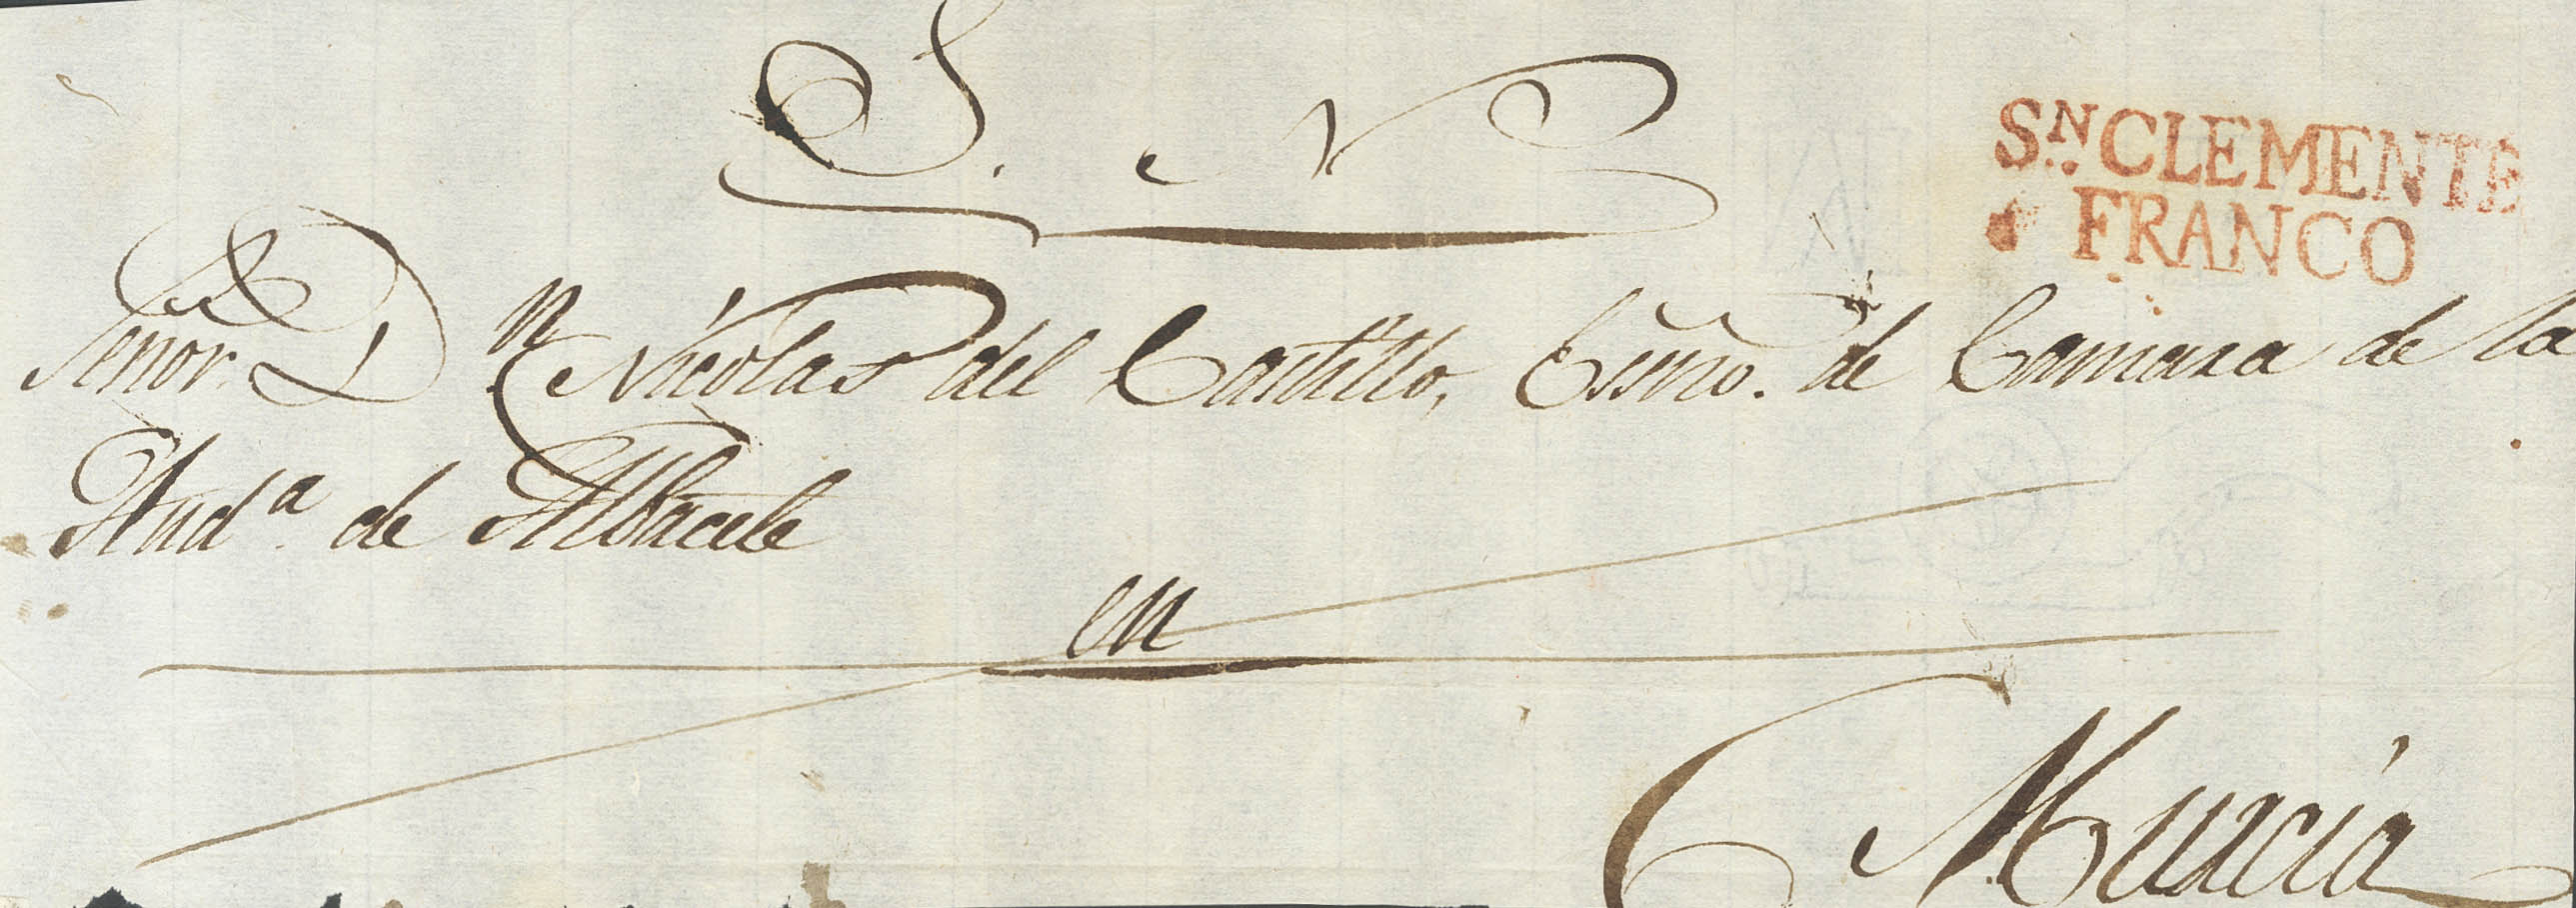 S. N
Sⁿ. CLEMENTE
FRANCO
Señor. Dⁿ Nicolas del Castillo, Essño. de Camara de la
Audª. de Albacete
en
Murcia